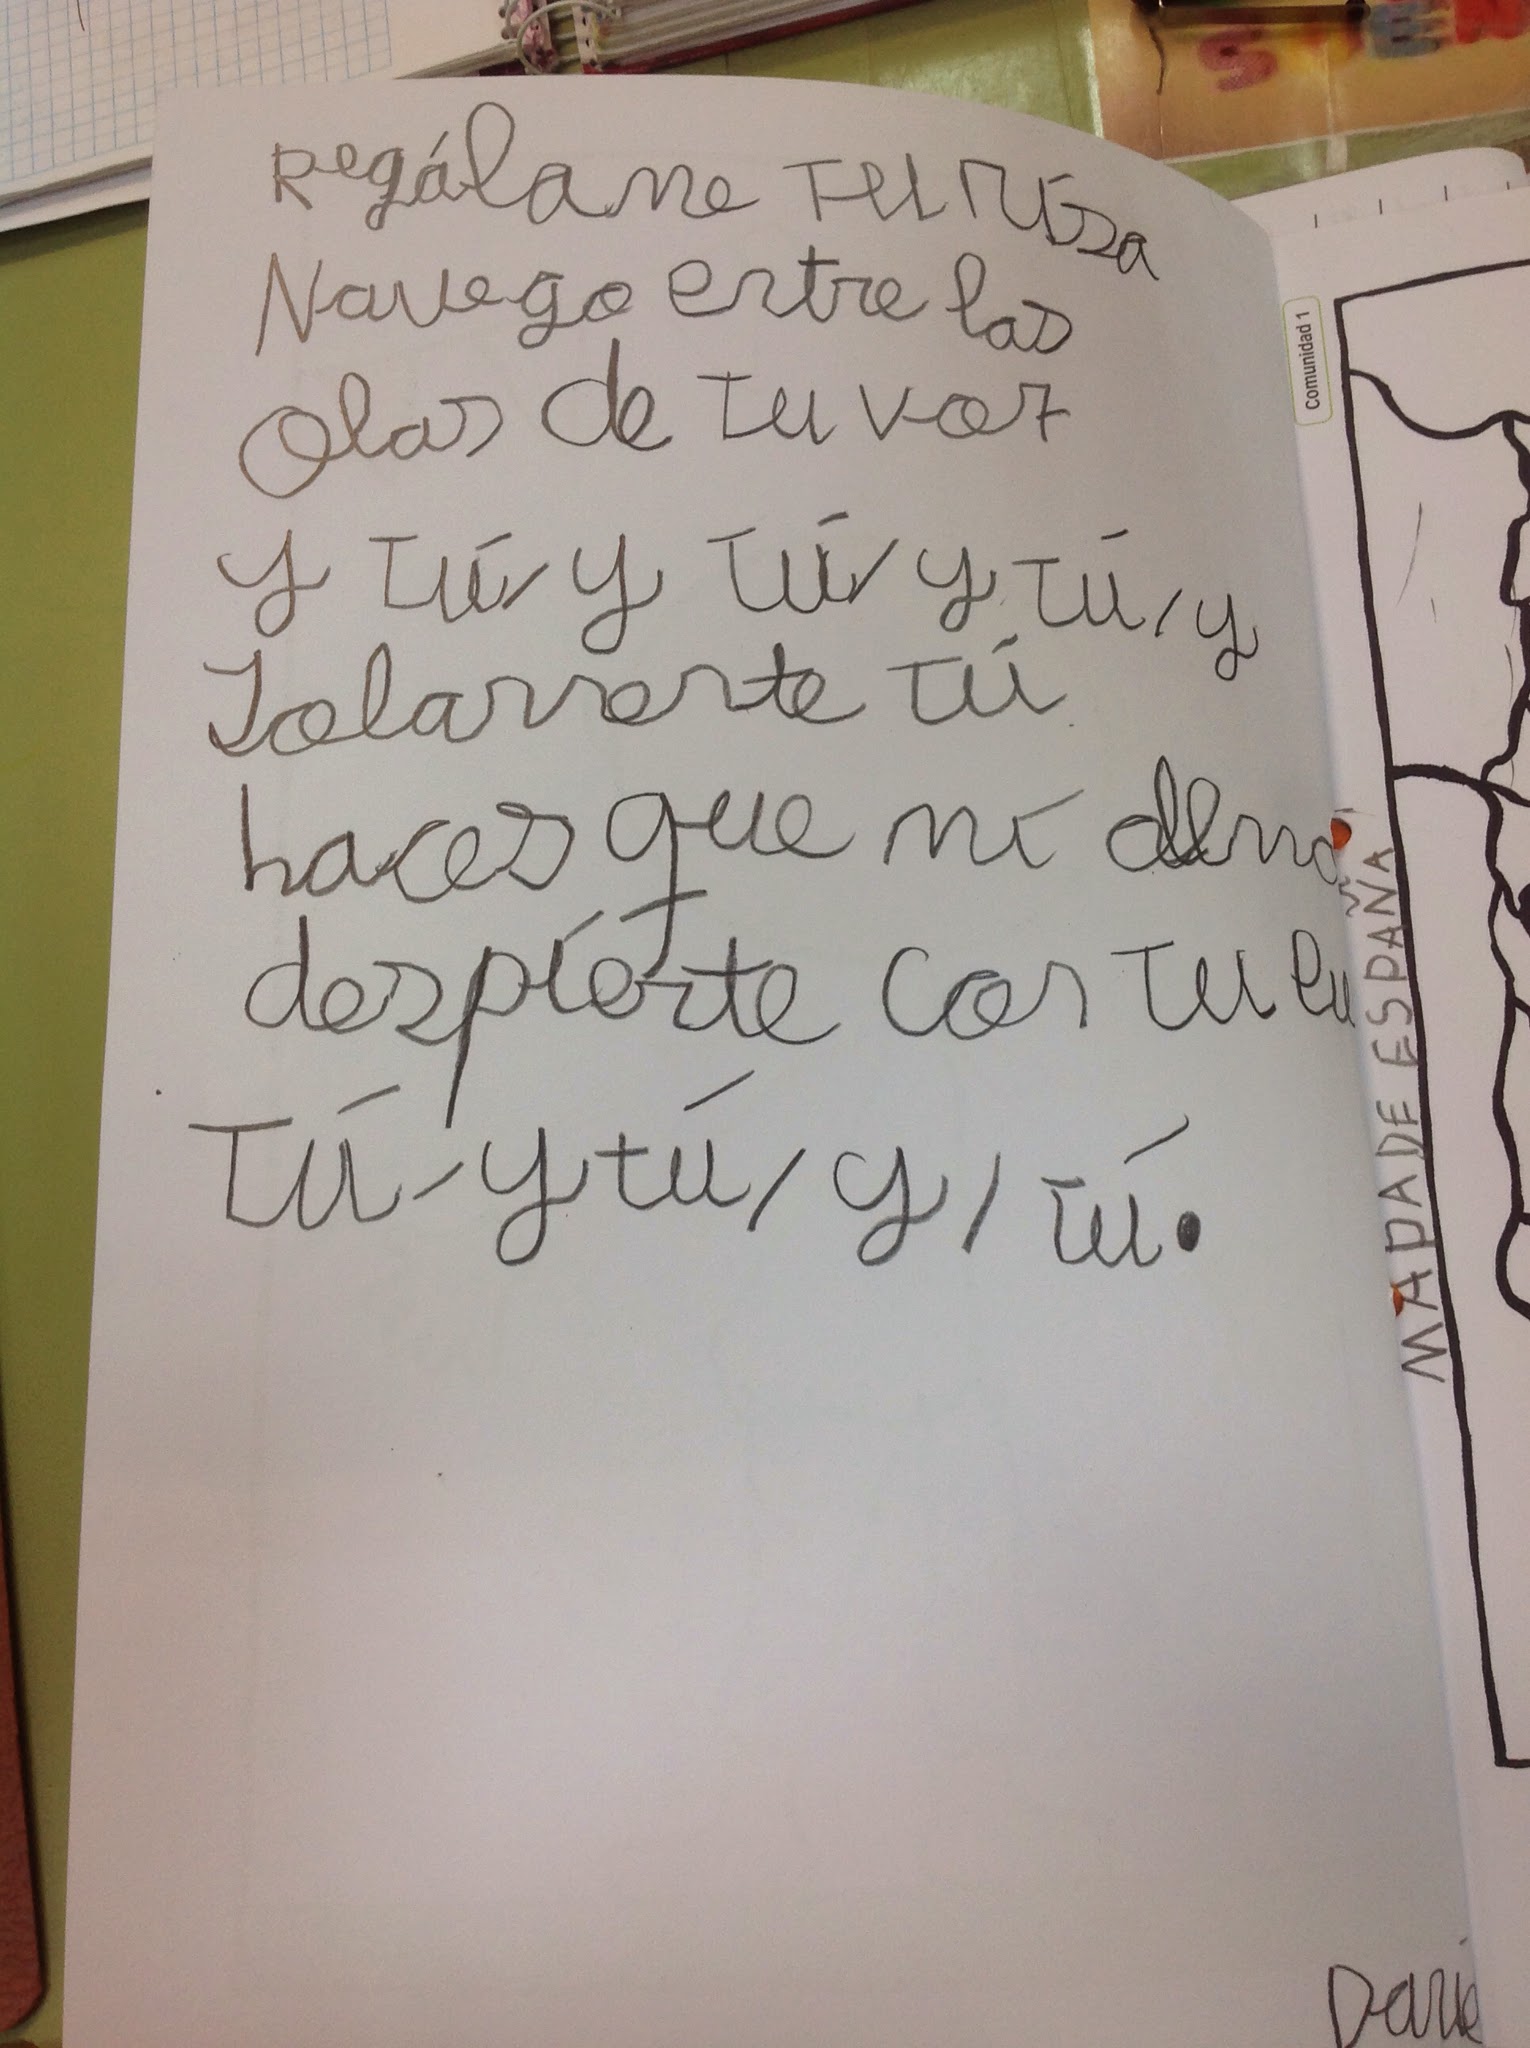 Regálame tu risa
Navego entre las
Olas de tu voz
y tú, y tú, y tú, y
Solamente tú
haces que mi alma
despierte con tu lu
Tú, y tú, y, tú.
Comunidad 1
MAPA DE ESPAÑA